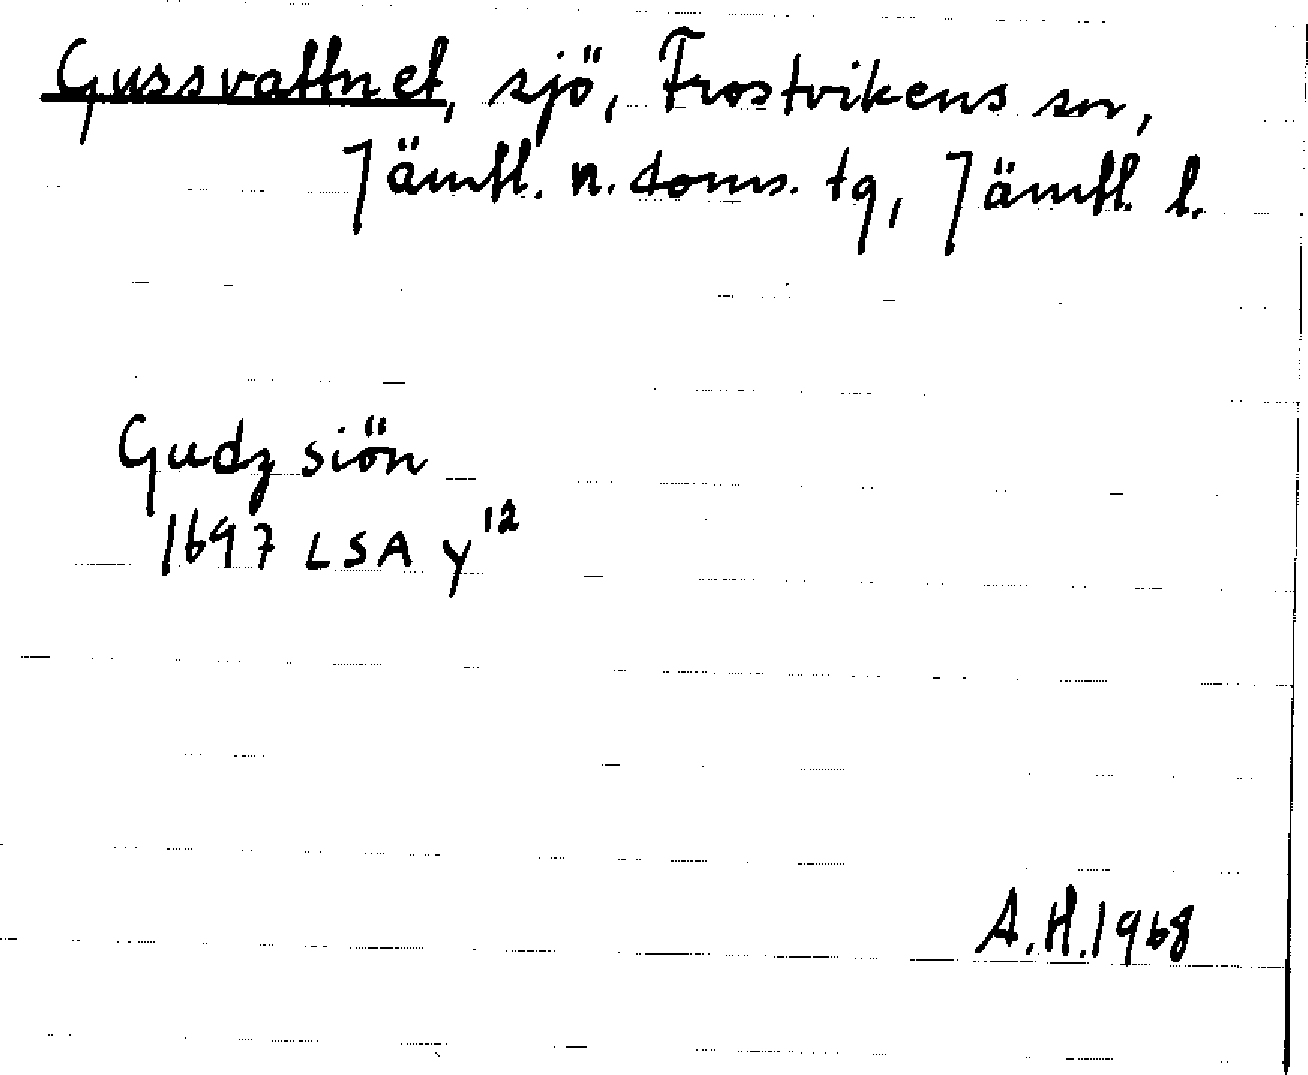 Gussvattnet, sjö, Frostvikens sn,
Jämtl. n. doms. tg, Jämtl. l.
Gudz siön
1697 LSA y12
A.H. 1968